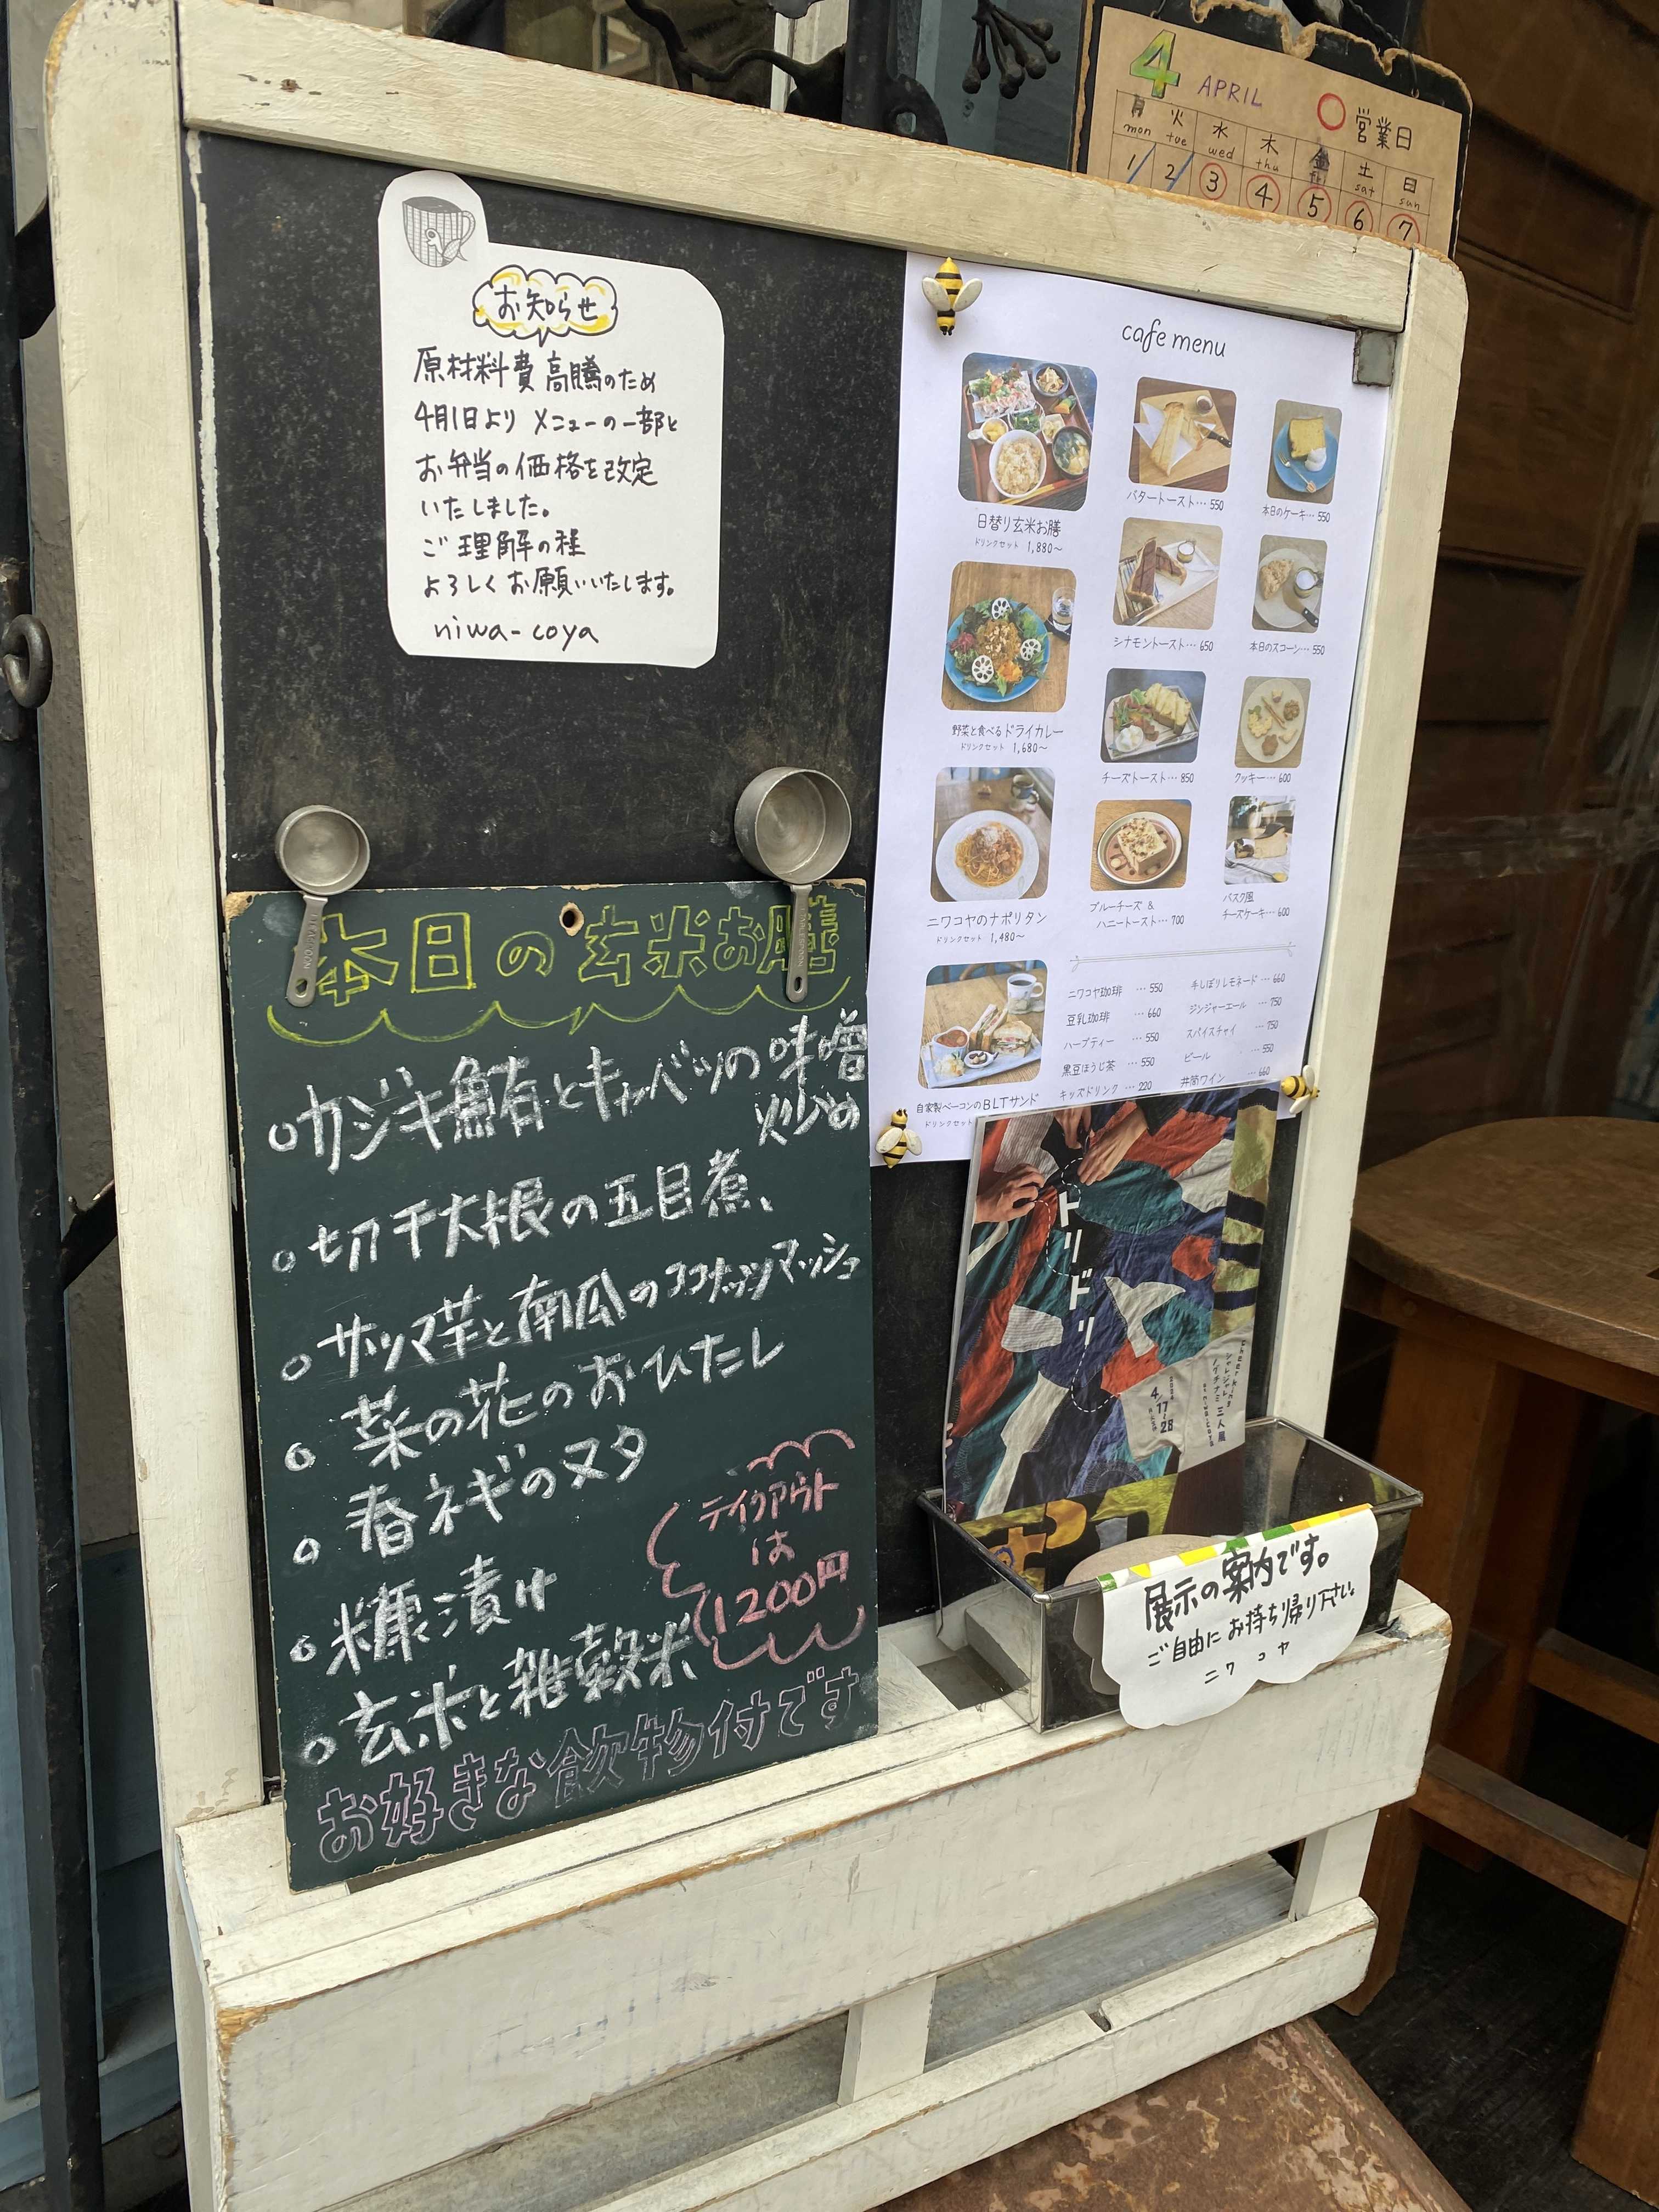 4 APRIL ○営業日
月 火 水 木 金 土 日
mon tue wed thu fri sat sun
1 2 3 4 5 6 7
お知らせ
原材料費高騰のため
4月1日より メニューの一部と
お弁当の価格を改定
いたしました。
ご理解の程
よろしくお願いいたします。
niwa-coya
cafe menu
日替り玄米お膳
ドリンクセット 1,880〜
野菜と食べるドライカレー
ドリンクセット 1,680〜
ニワコヤのナポリタン
ドリンクセット 1,480〜
自家製ベーコンのBLTサンド
ドリンクセット
バタートースト…550
シナモントースト…650
チーズトースト…850
ブルーチーズ &
ハニートースト…700
本日のケーキ…550
本日のスコーン…550
クッキー…600
バスク風
チーズケーキ…600
ニワコヤ珈琲 …550
豆乳珈琲 …660
ハーブティー …550
黒豆ほうじ茶 …550
キッズドリンク …220
手しぼりレモネード …660
ジンジャーエール …750
スパイスチャイ …750
ビール …550
井筒ワイン …660
本日の玄米お膳
○カジキ鮪とキャベツの味噌
炒め
○切干大根の五目煮、
○サツマ芋と南瓜のココナッツマッシュ
○菜の花のおひたし
○春ネギのヌタ
○糠漬け
○玄米と雑穀米
テイクアウト
は
1200円
お好きな飲物付です
トリドリ
三人展
2024
4/17
28
展示の案内です。
ご自由にお持ち帰り下さい。
ニワコヤ